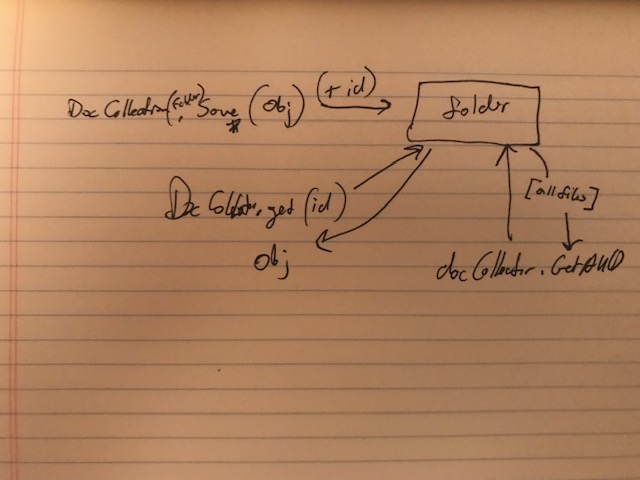 Doc Collection(folder).Save(Obj) (+id)
folder
Doc Collection.get(id)
obj
[all files]
doc Collection.GetAll()